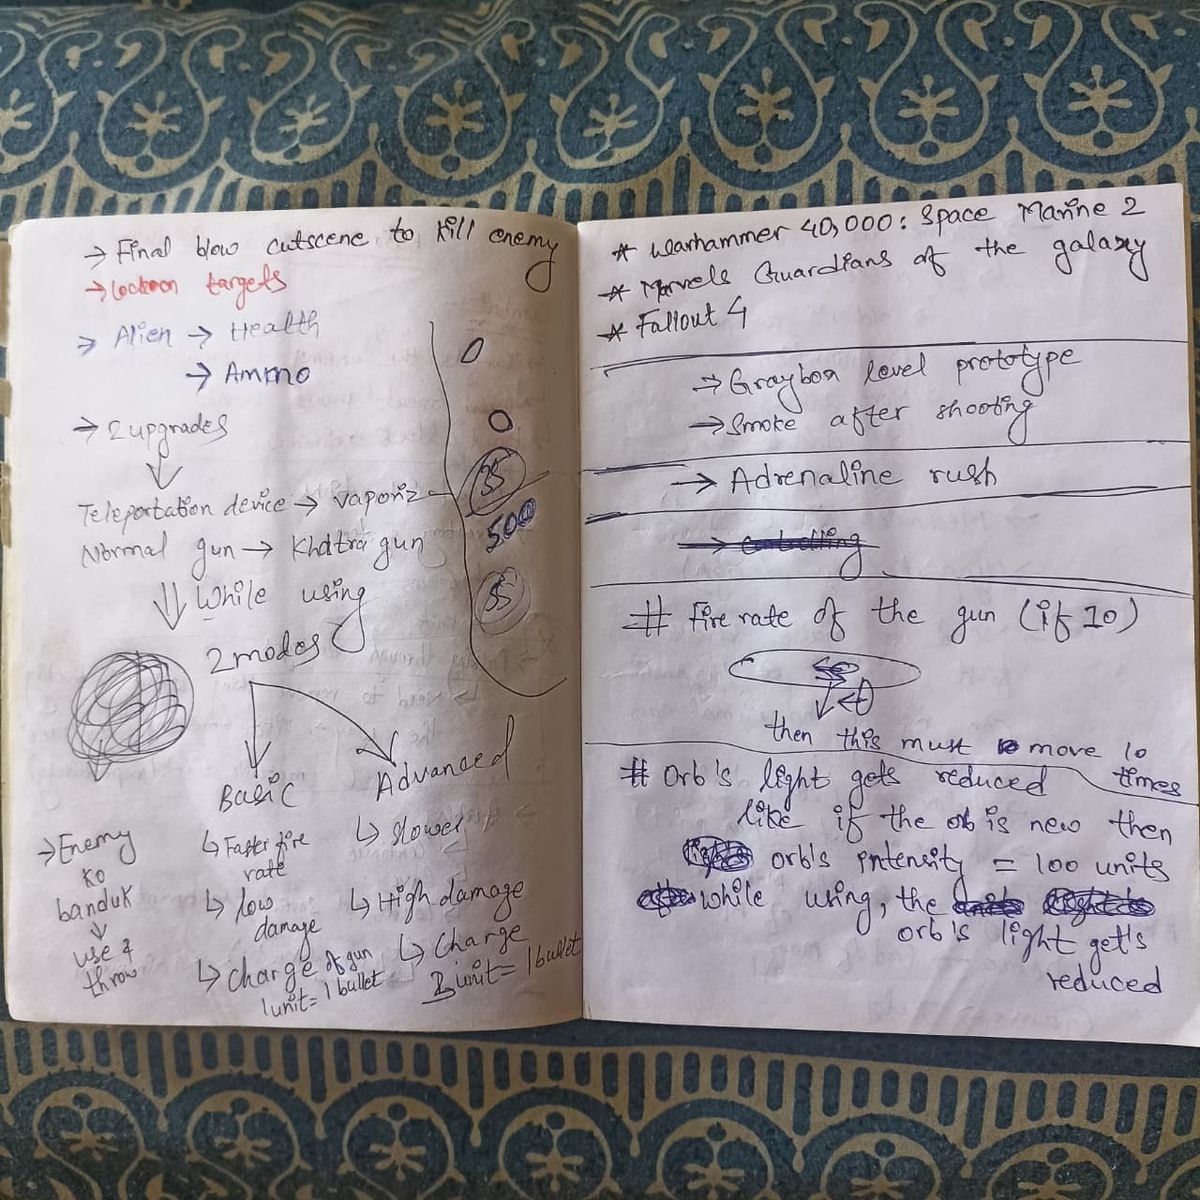 → Final blow cutscene to kill enemy
→ Lockon targets
→ Alien → Health
→ Ammo
→ 2 upgrades
Teleportation device → vaporiz
Normal gun → Khatra gun
While using
2 modes
Basic
↳ Faster fire
rate
↳ low
damage
↳ charge of gun
1 unit = 1 bullet
Advanced
↳ slower
↳ High damage
↳ Charge
unit = 1 bullet
→ Enemy
ko
banduk
↓
use &
throw
0
0
35
500
35
* Warhammer 40,000: Space Marine 2
* Marvels Guardians of the galaxy
* Fallout 4
→ Graybox level prototype
→ Smoke after shooting
→ Adrenaline rush
# Fire rate of the gun (if 10)
then this must move 10
times
# Orb's light gets reduced
like if the orb is new then
orb's intensity = 100 units
while using, the
orb's light get's
reduced